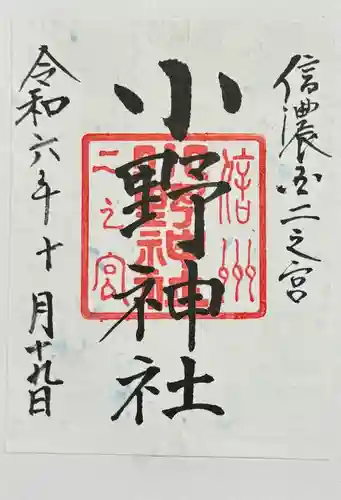 信濃国二之宮
小野神社
令和六年十月十九日
信州
二之宮
小野神社